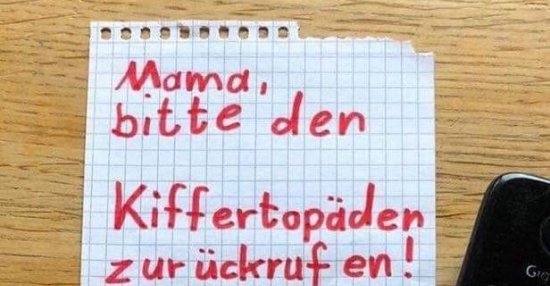 Mama,
bitte den
Kiffertopäden
zurückrufen!